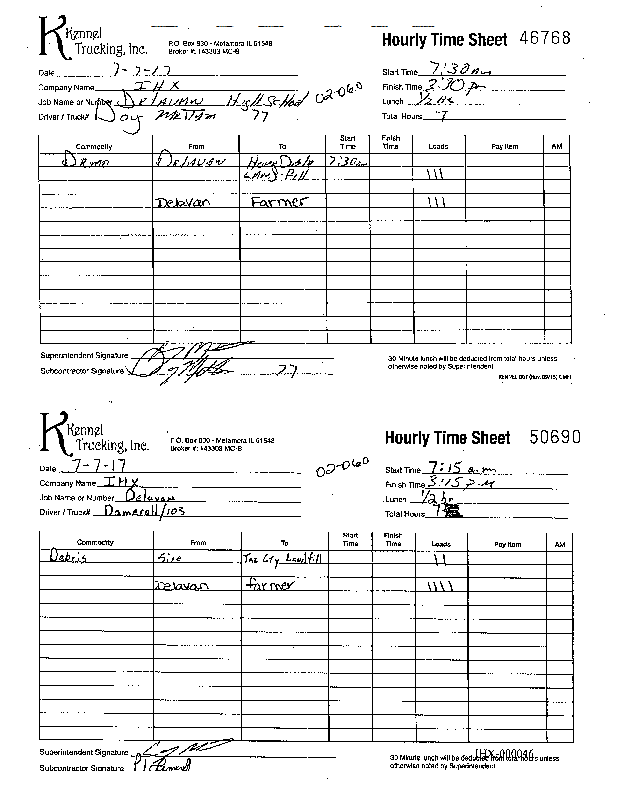 Kennel Trucking, Inc.
P.O. Box 930 - Metamora IL 61548
Broker #: 143303 MC-B
Hourly Time Sheet 46768
Date 7-7-17
Company Name IHX
Job Name or Number Delavan High School 02-060
Driver / Truck# 77
Start Time 7:30 am
Finish Time 3:30 pm
Lunch 1/2 Hr
Total Hours 7
Commodity From To Start Time Finish Time Loads Pay Item AM
Delavan 7:30am
III
Delavan Farmer III
Superintendent Signature
Subcontractor Signature 77
30 Minute lunch will be deducted from total hours unless
otherwise noted by Superintendent
Kennel Trucking, Inc.
Broker #: 143303 MC-B
Hourly Time Sheet 50690
Date 7-7-17
02-060
Company Name IHX
Job Name or Number Delavan
Driver / Truck# Damerell/103
Start Time 7:15 a.m
Finish Time 3:15 P.M
Lunch 1/2 hr
Total Hours
Commodity From To Start Time Finish Time Loads Pay Item AM
Debris Site Landfill II
Delavan farmer IIII
Superintendent Signature
Subcontractor Signature
IHX-000046
30 Minute lunch will be deducted from total hours unless
otherwise noted by Superintendent